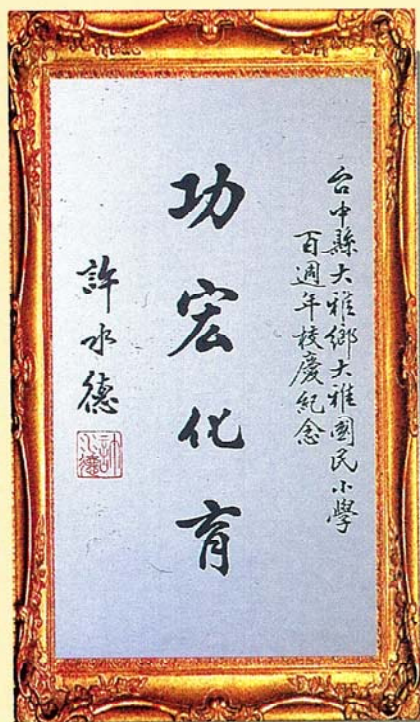 台中縣大雅鄉大雅國民小學
百週年校慶紀念
功宏化育
許水德
許水德